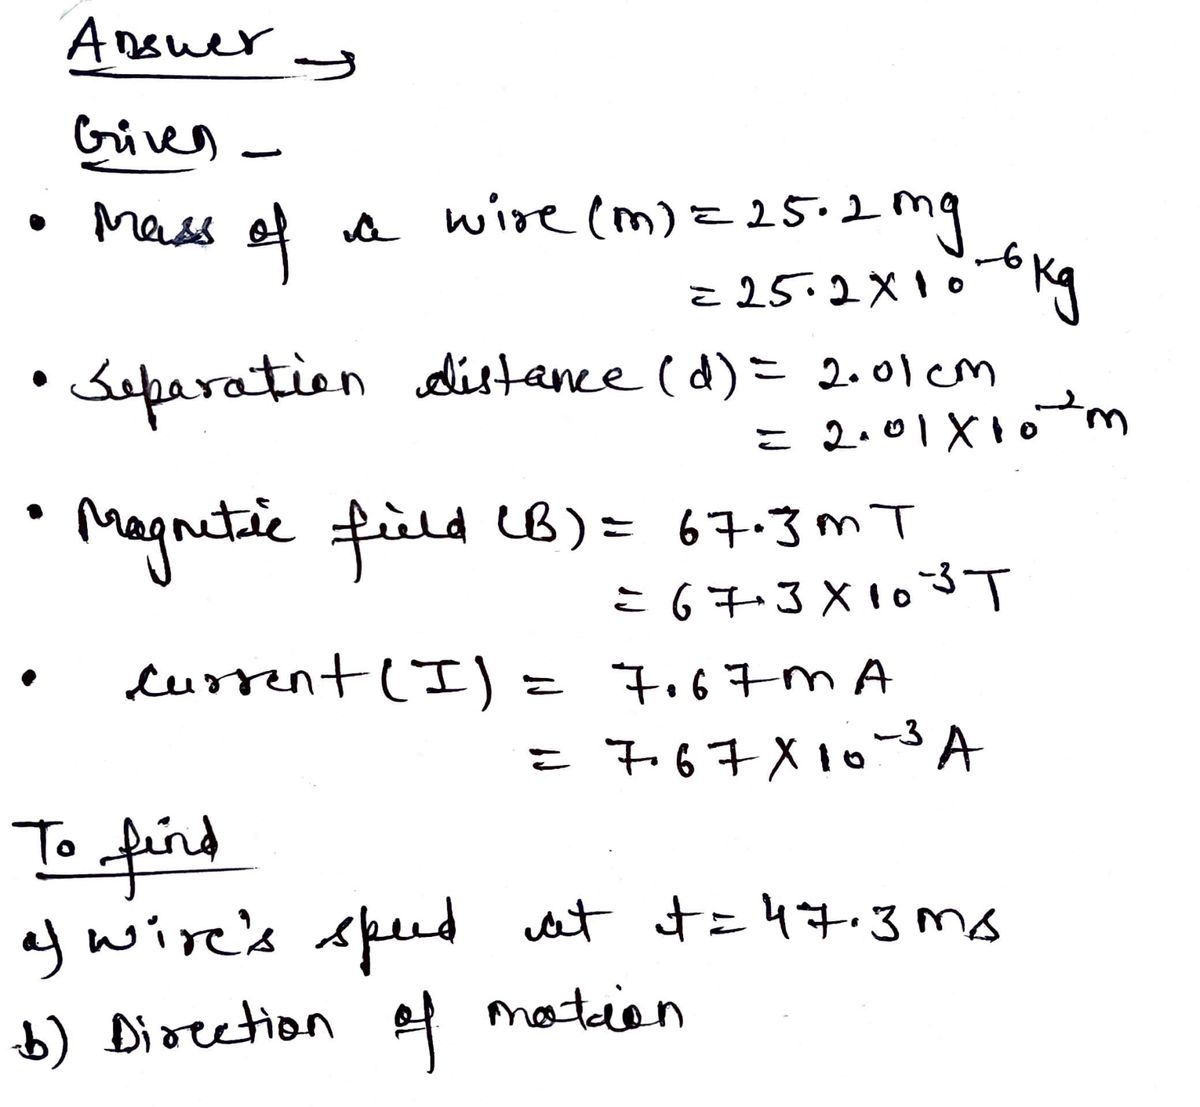 Answer →
Given -
• Mass of a wire (m) = 25.2 mg
= 25.2 × 10⁻⁶ kg
• Separation distance (d) = 2.01 cm
= 2.01 × 10⁻² m
• Magnetic field (B) = 67.3 m T
= 67.3 × 10⁻³ T
• Current (I) = 7.67 m A
= 7.67 × 10⁻³ A
To find
a) wire's speed at t = 47.3 ms
b) Direction of motion